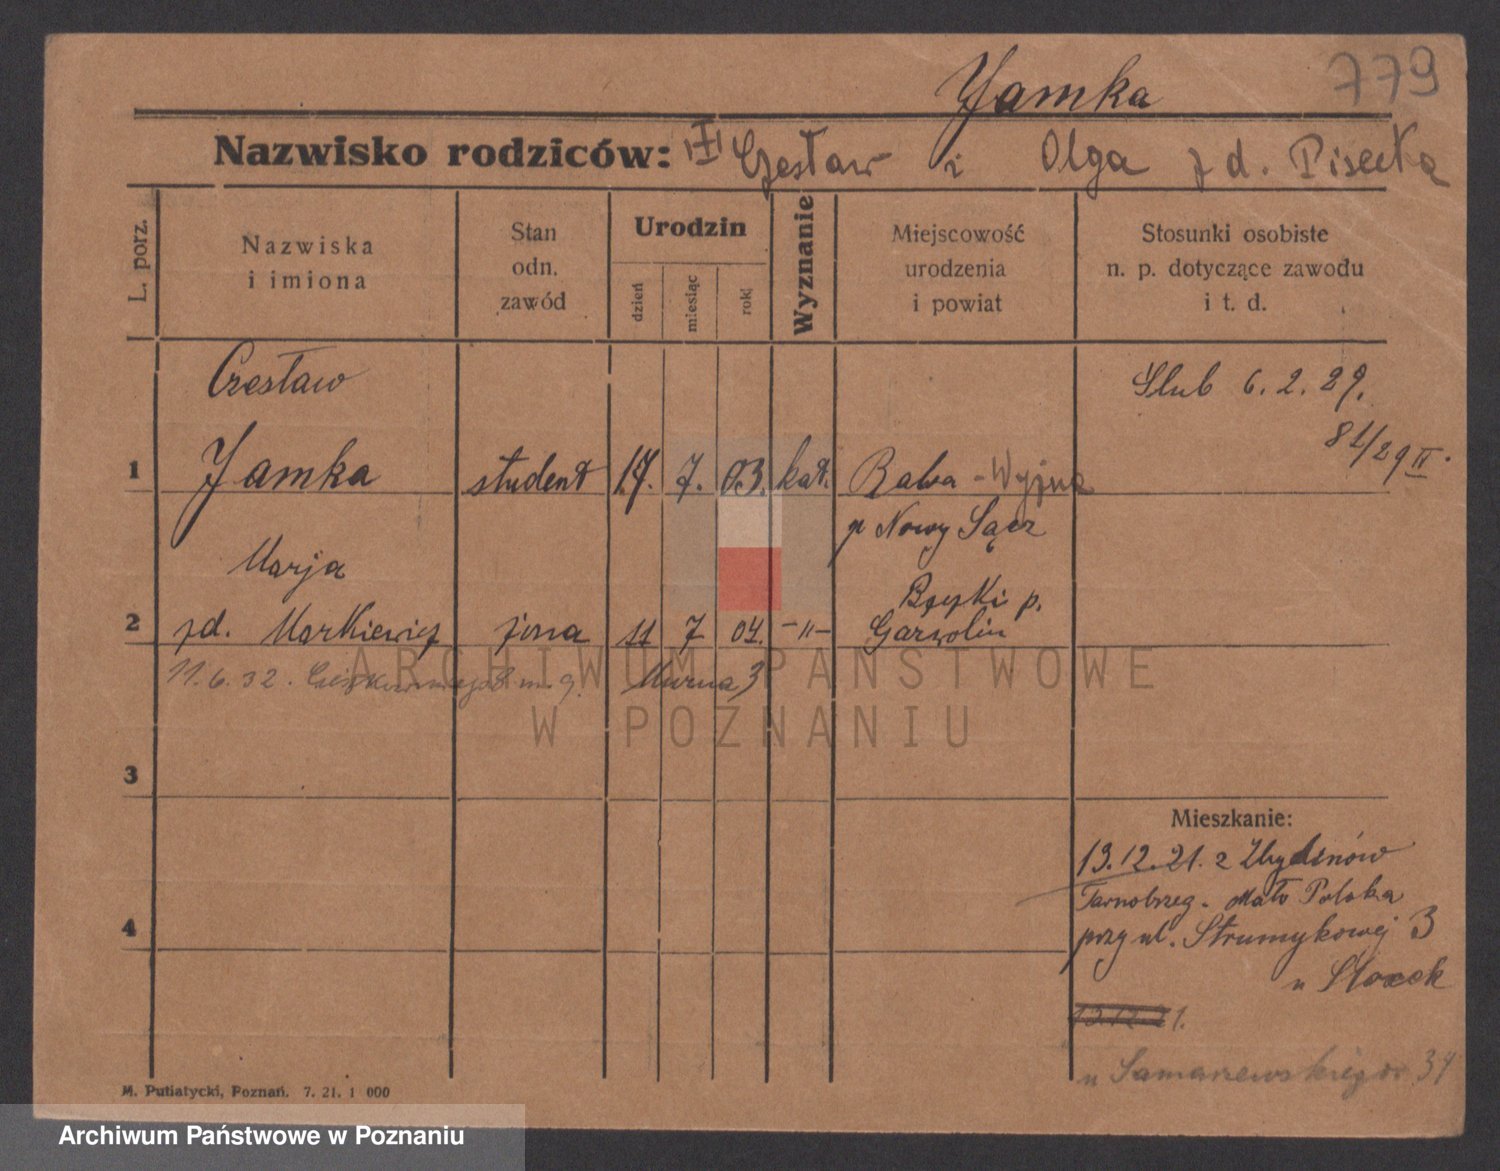 779
Jamka
Nazwisko rodziców: Czesław i Olga z d. Pisecka
L. porz.
Nazwiska i imiona
Stan odn. zawód
Urodzin
dzień
miesiąc
rok
Wyznanie
Miejscowość urodzenia i powiat
Stosunki osobiste n. p. dotyczące zawodu i t. d.
Czesław
Ślub 6. 2. 29.
81/29 II.
1 Jamka student 17. 7. 03. kat. Raba - Wyżna
p Nowy Sącz
Marja
2 zd. Markiewicz żona 11 7 04. -"- p. Garwolin
11.6.32. m. 9. Murna 3
3
4
Mieszkanie:
13.12.21. z Zbydniów
Tarnobrzeg. Mało Polska
przy ul. Strumykowej 3
u
13.12.21.
u Samarzewskiego 34
M. Putiatycki, Poznań. 7. 21. 1 000
ARCHIWUM PAŃSTWOWE
W POZNANIU
Archiwum Państwowe w Poznaniu